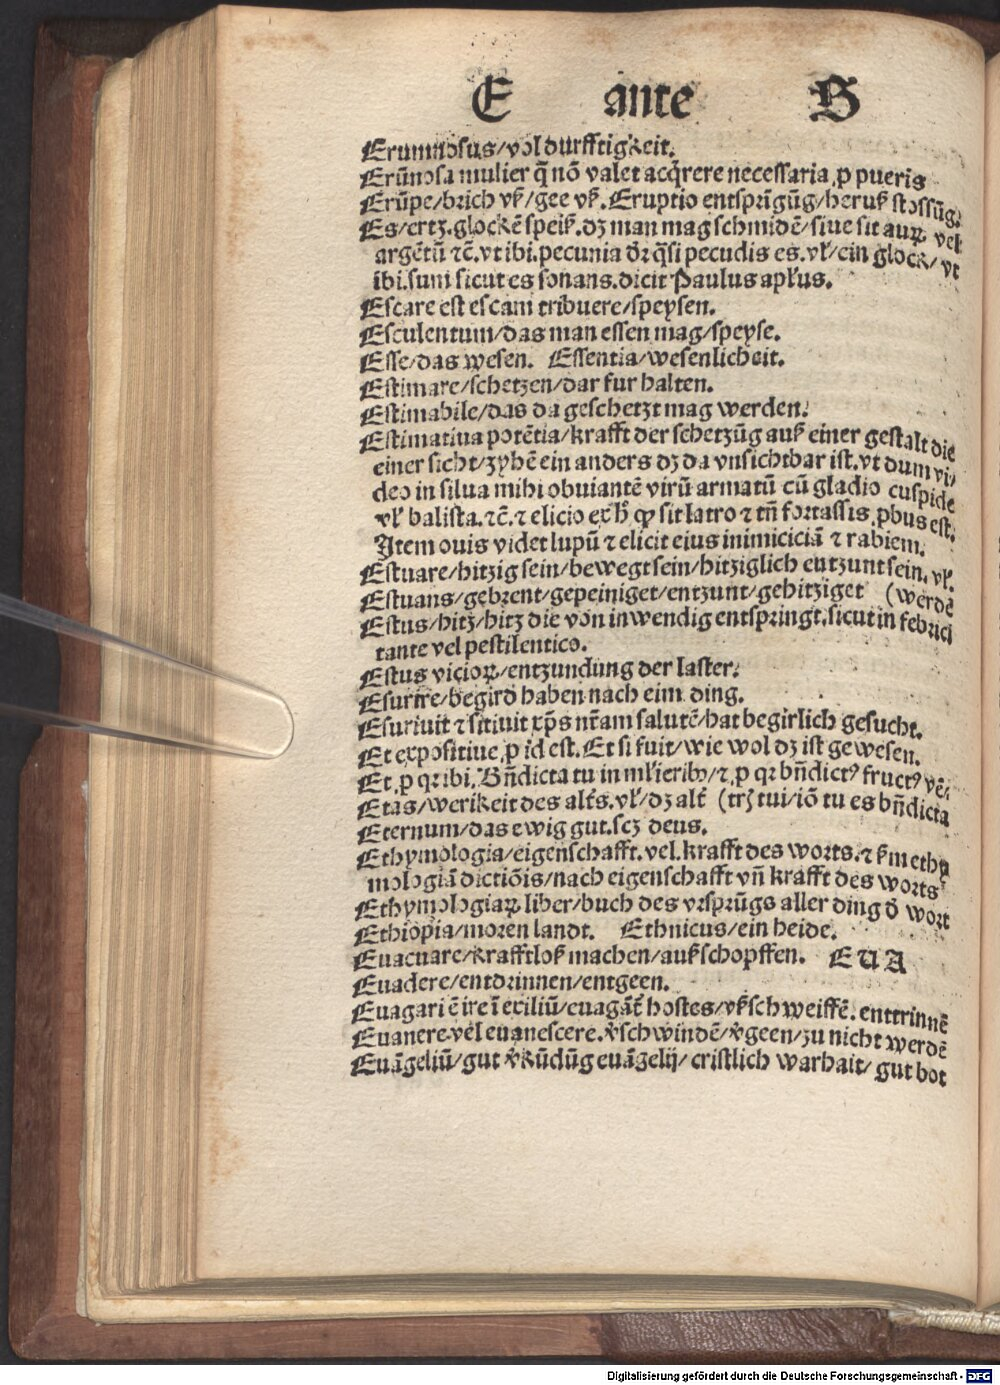 E ante S
Erumnosus/vol durfftigkeit.
Erūnosa mulier q̄ nō valet acq̄rere necessaria ꝓ pueris
Erūpe/brich vß/gee vß. Eruptio entsprīgūg/heruß stossūg.
Es/ertz.glockē speiß.dz man mag schmidē/siue sit auꝝ vel
argētū ⁊c̄.vt ibi.pecunia dr̄ q̄si pecudis es.vl̓/ein glock/vt
ibi.sum sicut es sonans.dicit Paulus apl̓us.
Escare est escam tribuere/speysen.
Esculentum/das man essen mag/speyse.
Esse/das wesen. Essentia/wesenlicheit.
Estimare/schetzen/dar fur halten.
Estimabile/das da geschetzt mag werden.
Estimatiua potētia/krafft der schetzūg auß einer gestalt die
einer sicht/zyhē ein anders dz da vnsichtbar ist.vt dum vi/
deo in silua mihi obuiantē virū armatū cū gladio cuspide
vl̓ balista.⁊c̄.⁊ elicio ex h̄ ꝙ sit latro ⁊ tn̄ fortassis ꝓbus est.
Item ouis videt lupū ⁊ elicit eius inimiciciā ⁊ rabiem.
Estuare/hitzig sein/bewegt sein/hitziglich entzunt sein.vl̓.
Estuans/gebrent/gepeiniget/entzunt/gehitziget (werdē
Estus/hitz/hitz die von inwendig entspringt.sicut in febrici
tante vel pestilentico.
Estus vicioꝝ/entzundung der laster.
Esurire/begird haben nach eim ding.
Esuriuit ⁊ sitiuit xp̄s nr̄am salutē/hat begirlich gesucht.
Et expositiue ꝓ id est. Et si fuit/wie wol dz ist gewesen.
Et ꝓ qꝛ ibi. Bn̄dicta tu in ml̓ieribꝰ/⁊ ꝓ qꝛ bn̄dictꝰ fructꝰ vē/
Etas/werikeit des alt̄s.vl̓/dz alt̄ (trꝭ tui/iō tu es bn̄dicta
Eternum/das ewig gut.scꝫ deus.
Ethymologia/eigenschafft.vel.krafft des worts.⁊ ẜm ethy
mologiā dictiōis/nach eigenschafft vn̄ krafft des worts
Ethymologiaꝝ liber/buch des vrsprūgs aller ding d̄ wort
Ethiopia/moren landt. Ethnicus/ein heide.
Euacuare/krafftloß machen/außschopffen. EUA
Euadere/entdrinnen/entgeen.
Euagari ē ire ī exiliū/euagāt̄ hostes/vßschweiffē.enttrinnē
Euanere vel euanescere.v̓schwindē/v̓geen/zu nicht werdē
Euāgeliū/gut v̓kūdūg euāgelij/cristlich warhait/gut bot
Digitalisierung gefördert durch die Deutsche Forschungsgemeinschaft - DFG